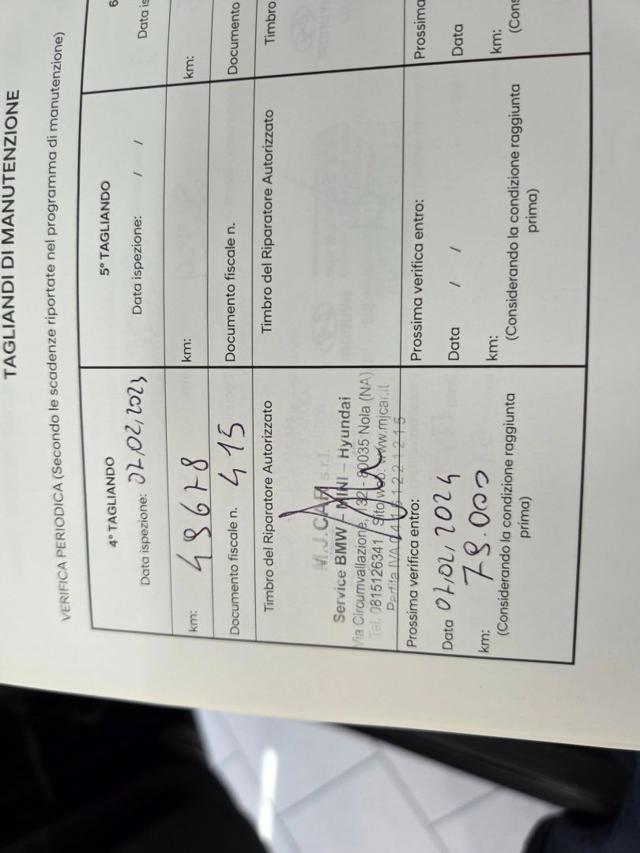 TAGLIANDI DI MANUTENZIONE
VERIFICA PERIODICA (Secondo le scadenze riportate nel programma di manutenzione)
4° TAGLIANDO
Data ispezione: 07,02,2023
km: 49678
Documento fiscale n. 415
Timbro del Riparatore Autorizzato
M.J.CAR s.r.l.
Service BMW - MINI - Hyundai
Via Circumvallazione, 132 - 80035 Nola (NA)
Tel. 0815126341 Sito web: www.mjcar.it
Partita IVA
Prossima verifica entro:
Data 07,02,2024
km: 79.000
(Considerando la condizione raggiunta
prima)
5° TAGLIANDO
Data ispezione: / /
km:
Documento fiscale n.
Timbro del Riparatore Autorizzato
Prossima verifica entro:
Data / /
km:
(Considerando la condizione raggiunta
prima)
6
km:
Documento
Timbro
Prossima
Data
km: